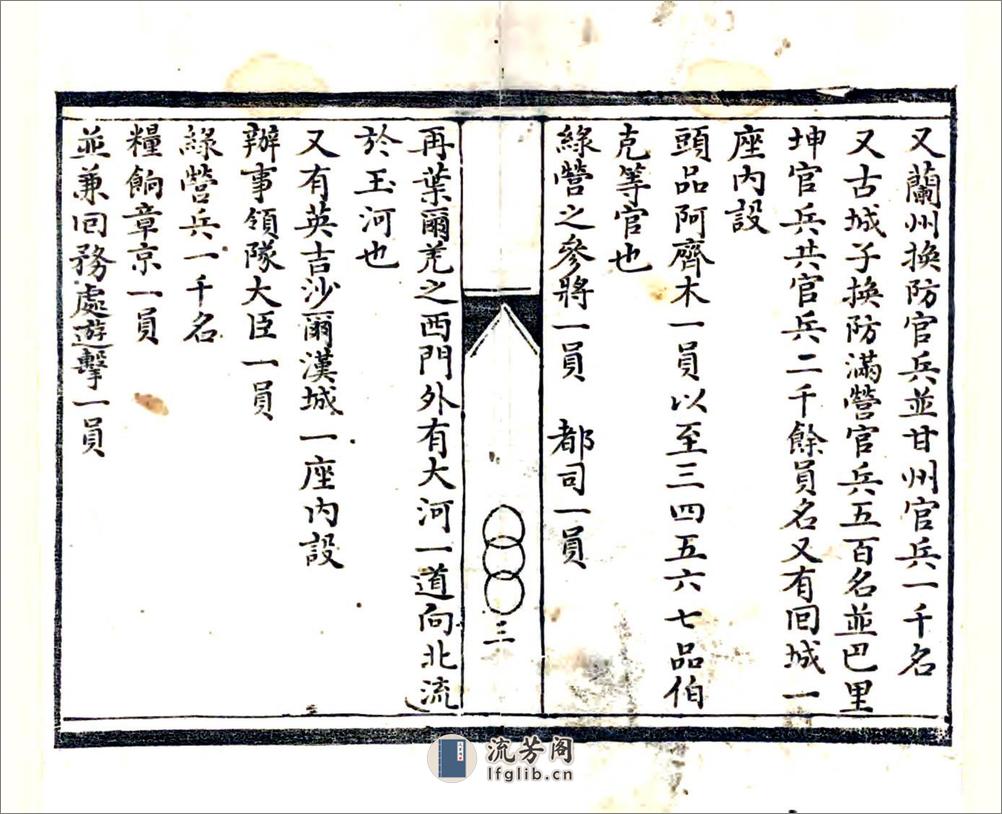 又蘭州換防官兵並甘州官兵一千名
又古城子換防滿營官兵五百名並巴里
坤官兵共官兵二千餘員名又有回城一
座內設
頭品阿齊木一員以至三四五六七品伯
克等官也
綠營之參將一員　都司一員
三
再葉爾羌之西門外有大河一道向北流
於玉河也
又有英吉沙爾漢城一座內設
辦事領隊大臣一員
綠營兵一千名
糧餉章京一員
並兼回務處遊擊一員
流芳阁
lfglib.cn